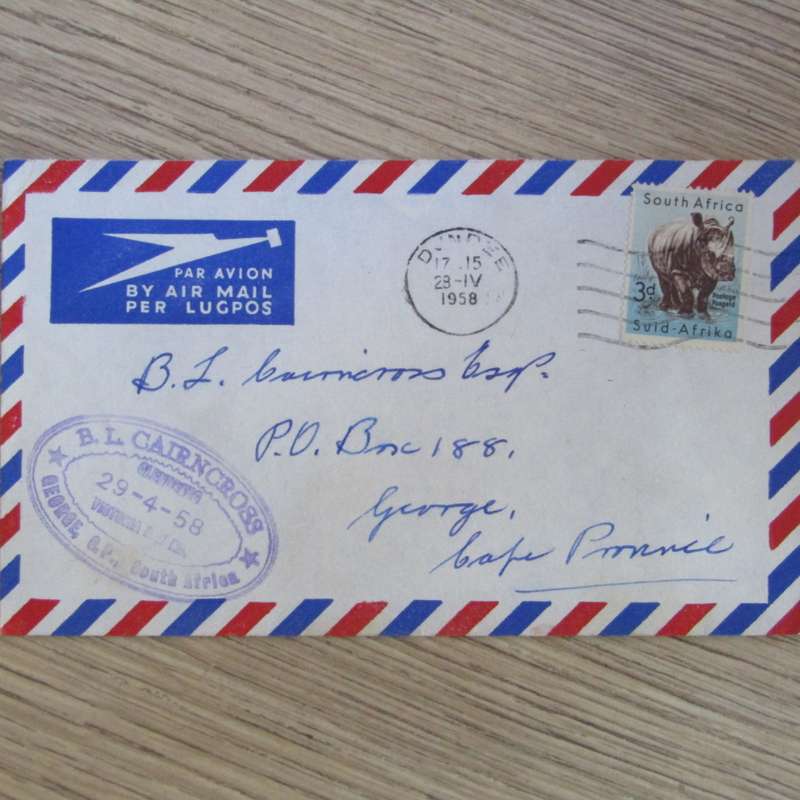 South Africa
3d
Postage
Posgeld
Suid-Afrika
DUNDEE
17 .15
28-IV
1958
PAR AVION
BY AIR MAIL
PER LUGPOS
B. L. Cairncross Esq.
P.O. Box 188,
George,
Cape Province
B. L. CAIRNCROSS
29-4-58
GEORGE, C.P., South Africa